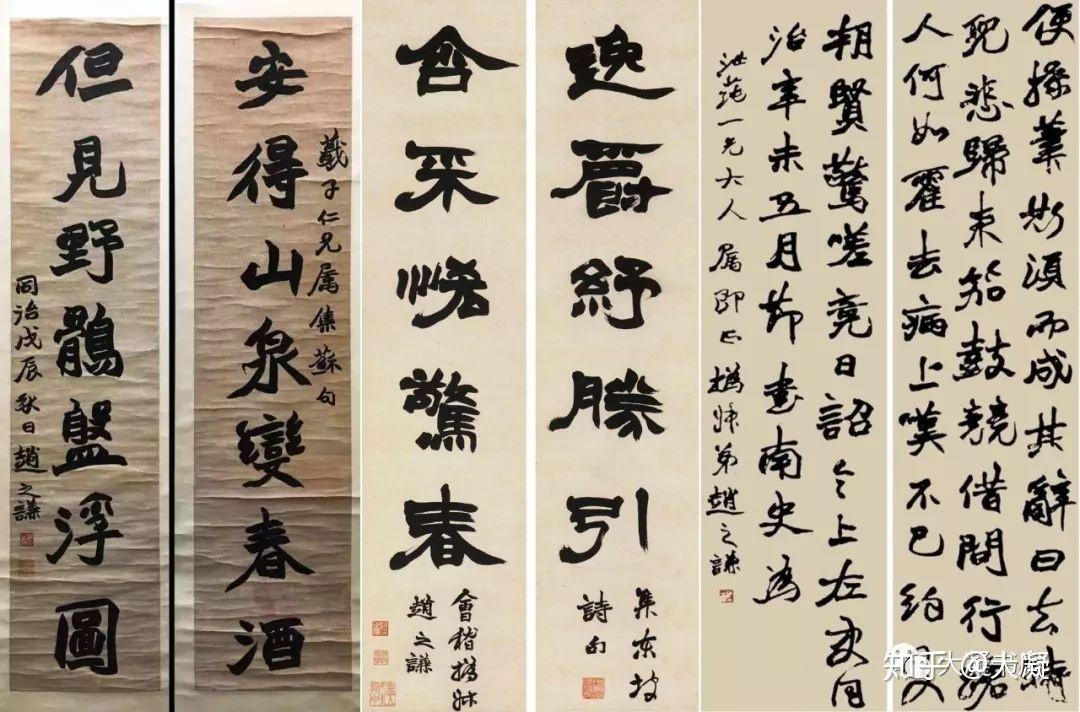 便操筆斯須而成其辭曰去時
兒悲歸来笳鼓競借問行路
人何如霍去病上嘆不已約及
朝賢驚嗟竟日詔令上左史同
治辛未五月節書南史為
一兄大人屬即正撝叔弟趙之謙
逸爵紓勝引
集東坡
詩句
含采驚春
會稽撝叔
趙之謙
安得山泉變春酒
蕺子仁兄屬集蘇句
但見野鶻盤浮圖
同治戊辰秋日趙之謙
知乎